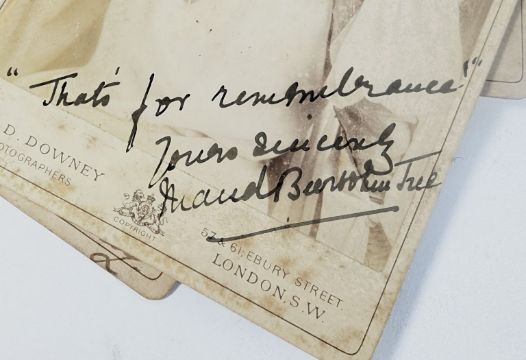 "That's for remembrance!"
Yours sincerely
Maud Beerbohm Tree
D. DOWNEY
OTOGRAPHERS
COPYRIGHT
57 & 61, EBURY STREET
LONDON, S.W.